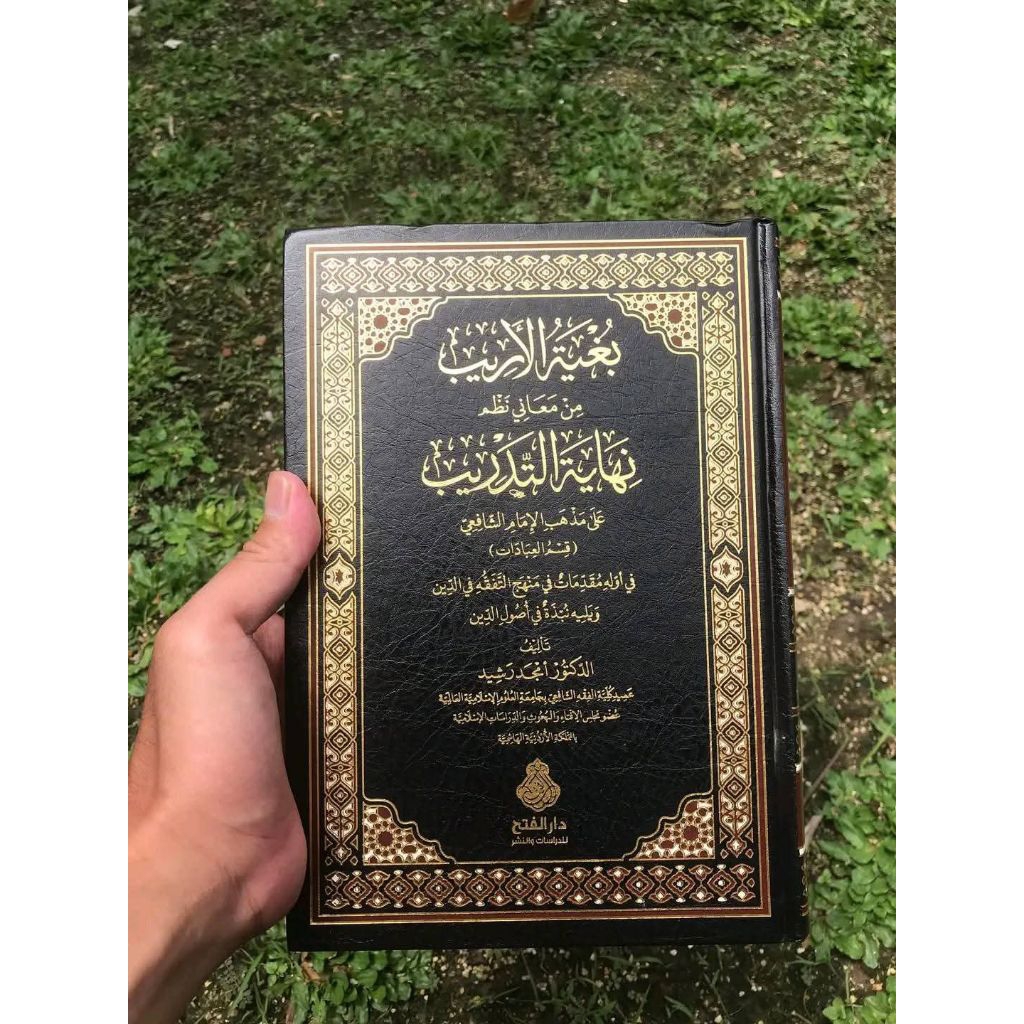 بُغْيَةُ الأَرِيبِ
مِنْ مَعَانِي نَظْمِ
نِهَايَةِ التَّدْرِيبِ
عَلَى مَذْهَبِ الإِمَامِ الشَّافِعِيّ
(قِسْمُ العِبَادَات)
فِي أَوَّلِهِ مُقَدِّمَاتٌ فِي مَنْهَجِ التَّفَقُّهِ فِي الدِّين
وَيَلِيهِ نُبْذَةٌ فِي أُصُولِ الدِّين
تَأْلِيفُ
الدّكتُورْ أَمْجَد رَشِيد
عَمِيد كُلِّيَّةِ الفِقْهِ الشَّافِعِيّ بِجَامِعَةِ العُلُومِ الإِسْلَامِيَّةِ العَالَمِيَّة
عُضْو مَجْلِسِ الإِفْتَاءِ وَالبُحُوثِ وَالدِّرَاسَاتِ الإِسْلَامِيَّة
بِالمَمْلَكَةِ الأُرْدُنِيَّةِ الهَاشِمِيَّة
دار الفتح
للدراسات والنشر